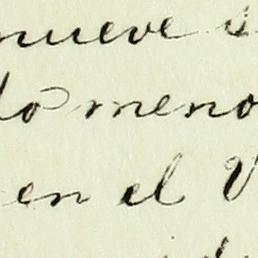 nueve
do meno
en el V